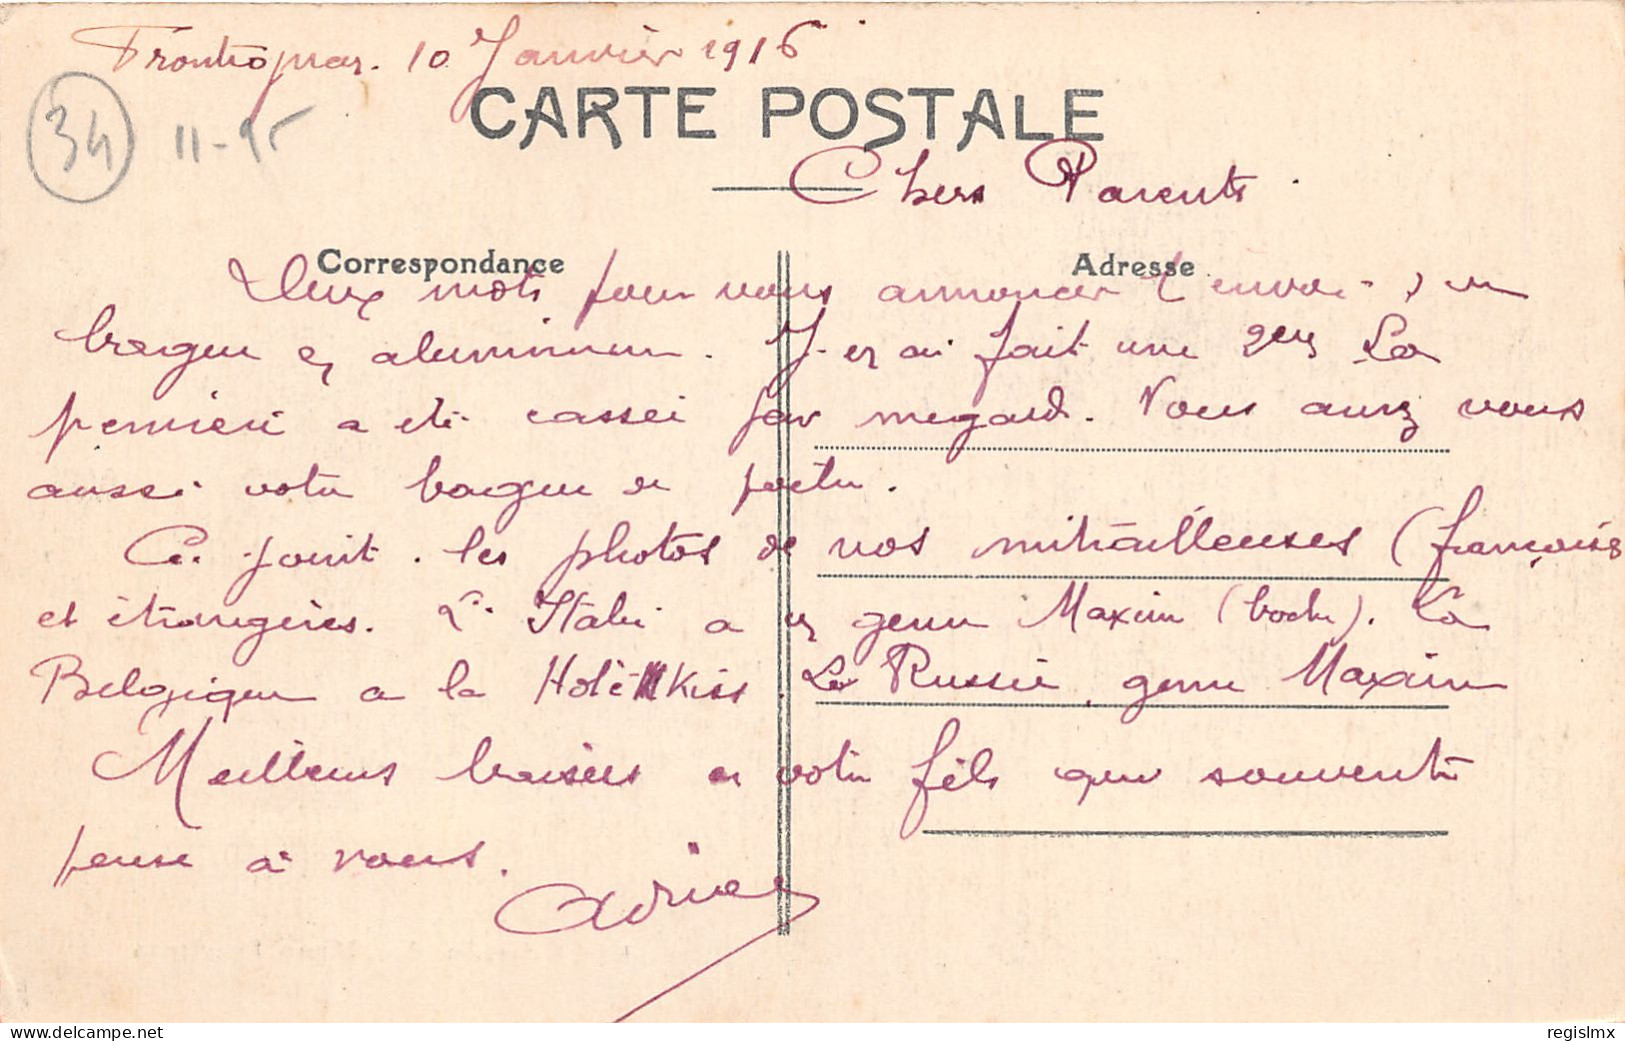 Frontignan. 10 Janvier 1916
34 11-95
CARTE POSTALE
Chers Parents.
Correspondance
Adresse
Deux mots pour vous annoncer l'envoi d'un
bague en aluminium. J'en ai fait une 2em La
première a été cassée par mégard. Vous aurez vous
aussi votre bague de poilu.
Ci joint. les photos de nos mitrailleuses (françaises
et étrangères. L'Italie a en genre Maxim (boche). La
Belgique a la Hotchkiss. La Russie, genre Maxim
Meilleurs baisers de votre fils que souvente
pense à vous.
Adrien
www.delcampe.net
regislmx